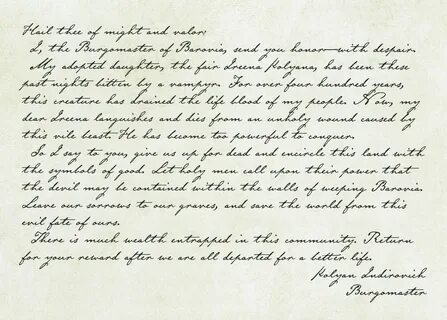 Hail thee of might and valor:
I, the Burgomaster of Barovia, send you honor—with despair.
My adopted daughter, the fair Ireena Kolyana, has been these
past nights bitten by a vampyr. For over four hundred years,
this creature has drained the life blood of my people. Now, my
dear Ireena languishes and dies from an unholy wound caused by
this vile beast. He has become too powerful to conquer.
So I say to you, give us up for dead and encircle this land with
the symbols of good. Let holy men call upon their power that
the devil may be contained within the walls of weeping Barovia.
Leave our sorrows to our graves, and save the world from this
evil fate of ours.
There is much wealth entrapped in this community. Return
for your reward after we are all departed for a better life.
Kolyan Indirovich
Burgomaster